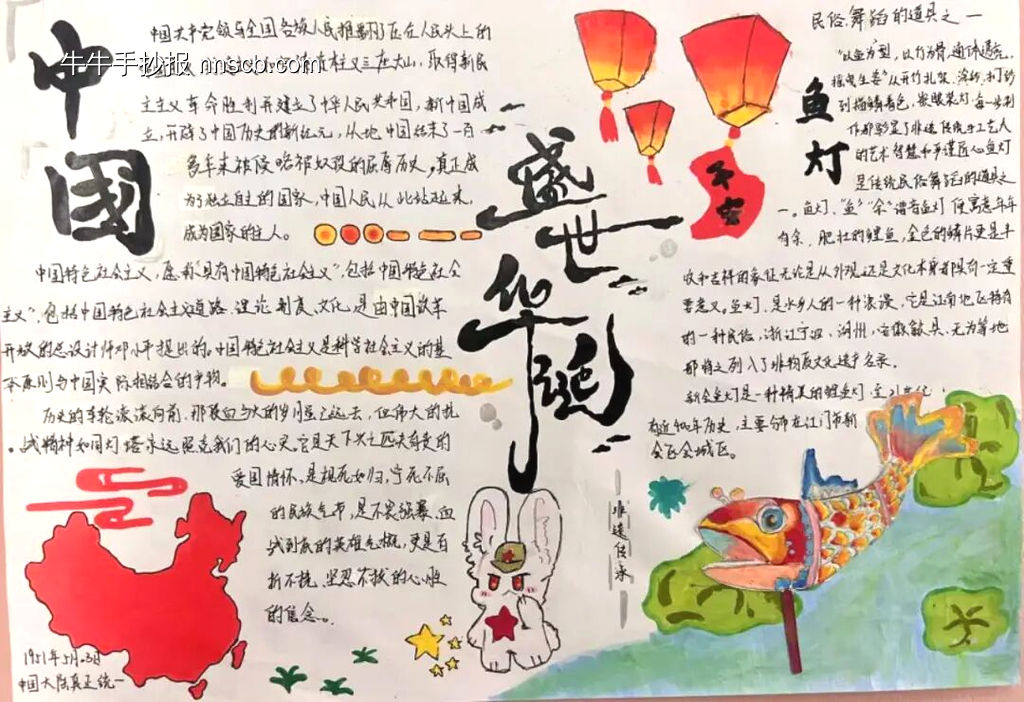 中國
牛牛手抄报 nnscb.com
中国共产党领导全国各族人民推翻了压在人民头上的
主义三座大山，取得新民
主主义革命胜利并建立了中华人民共和国，新中国成
立，开辟了中国历史的新纪元，从此中国结束了一百
多年来被侵略被奴役的屈辱历史，真正成
为了独立自主的国家，中国人民从此站起来，
成为国家的主人。
中国特色社会主义，"具有中国特色社会主义"，包括中国特色社会
主义"，包括中国特色社会主义道路、理论、制度、文化，是由中国改革
开放的总设计师邓小平提出的。中国特色社会主义是科学社会主义的基
本原则与中国实际相结合的产物。
历史的车轮滚滚向前，那段血与火的岁月虽已远去，但伟大的抗
战精神如同灯塔永远照亮我们的心灵。它是天下兴亡匹夫有责的
爱国情怀、是视死如归，宁死不屈
的民族气节，是不畏强暴、血
战到底的英雄气概，更是百
折不挠、坚忍不拔的心胜
的信念。
1951年5月23日
中国大陆真正统一
盛世华诞
非遗传承
民俗、舞蹈的道具之一
鱼灯
"以鱼为型，以竹为骨，通体透亮，
摇曳生姿"从开竹扎架、
到描鳞着色、装眼装灯，每一步制
作都彰显了非遗传统手工艺人
的艺术智慧和严谨匠心鱼灯
是传统民俗舞蹈的道具之
一。鱼灯，"鱼""余"谐音鱼灯便寓意年年
有余，肥壮的鲤鱼，金色的鳞片更是丰
收和吉祥的象征无论是从外观还是文化本身都具有一定重
要意义。鱼灯，是水乡人的一种浪漫，它是江南地区特有
的一种民俗，浙江宁波、湖州，安徽歙县、无为等地
都将之列入了非物质文化遗产名录。
新会鱼灯是一种精美的鲤鱼灯，
有近400年历史，主要分布在江门市新
会区会城区。